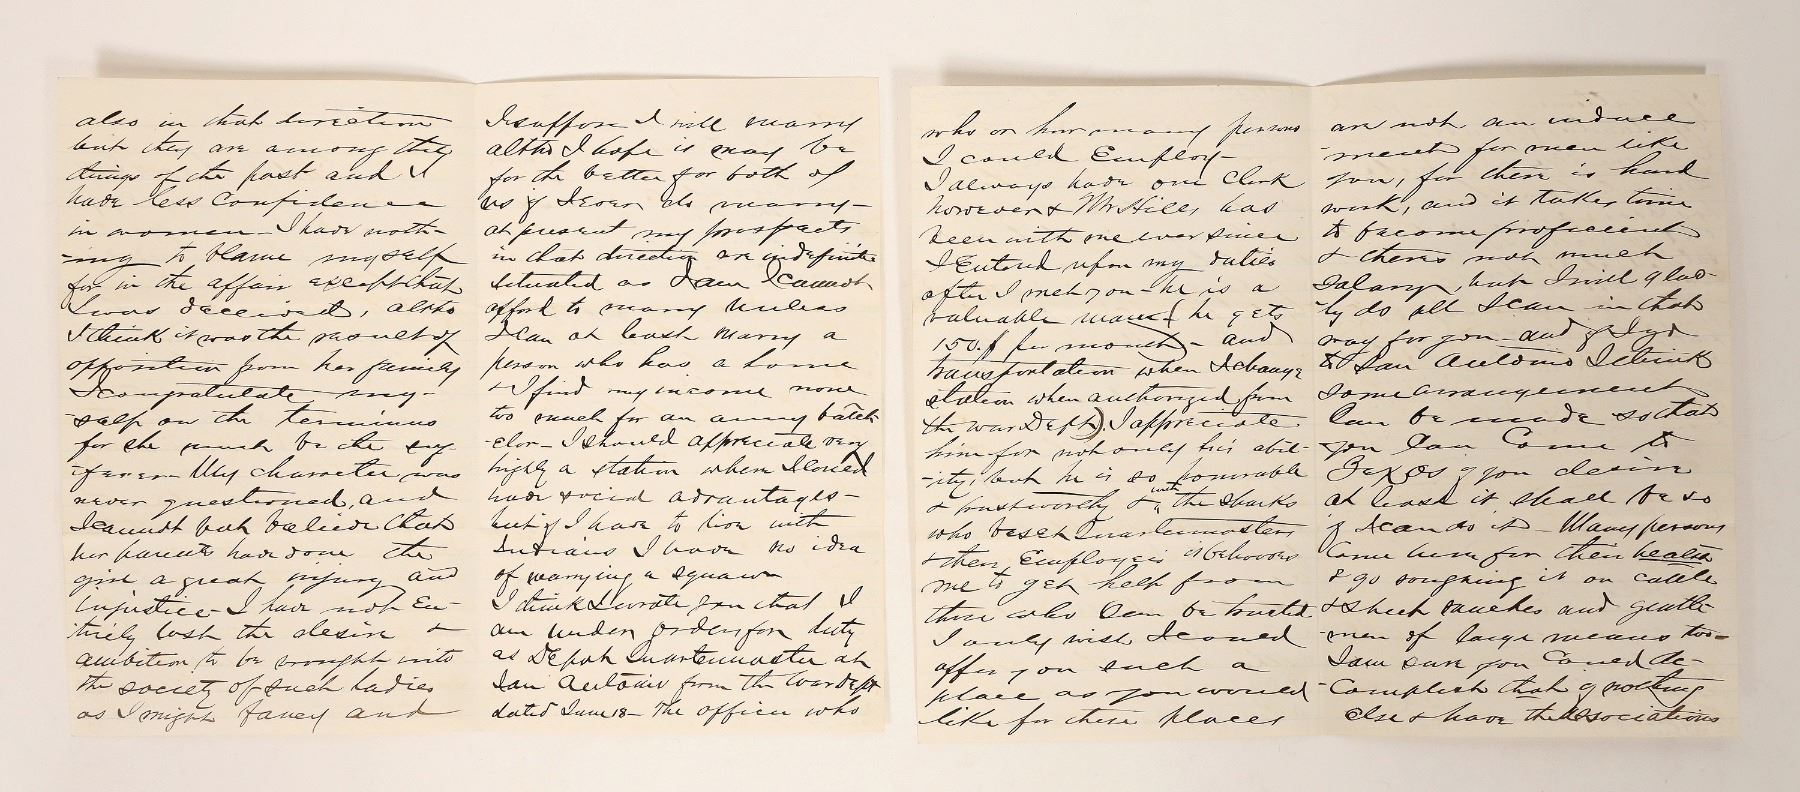 also in that direction
but they are among the
things of the past and I
have less confidence
in women - I have noth-
-ing to blame myself
for in the affair except that
I was deceived, altho
I think it was the result of
opposition from her family
I congratulate my-
-self on the terminus
for she must be the suf-
-ferer - My character was
never questioned, and
I cannot but believe that
her parents have done the
girl a great injury and
injustice - I have not en-
-tirely lost the desire &
ambition to be brought into
the society of such ladies
as I might fancy and
I suppose I will marry
altho I hope it may be
for the better for both of
us if I ever do marry -
at present my prospects
in that direction are indefinite
situated as I am I cannot
afford to marry unless
I can at least marry a
person who has a home
& I find my income none
too much for an army batch-
-elor - I should appreciate very
highly a station where I could
have social advantages -
but if I have to live with
Indians I have no idea
of marrying a squaw
I think I wrote you that I
am under orders for duty
as Depot Quartermaster at
San Antonio from the War Dept
dated June 18 - The officer who
who or how many persons
I could Employ -
I always have one Clerk
however & Mr Hills has
been with me ever since
I Entered upon my duties
after I met you - he is a
valuable man (he gets
150.$ per month) - and
transportation when I change
station when authorized from
the War Dept). I appreciate
him for not only his abil-
-ity, but he is so honorable
& trustworthy & with the sharks
who beset Quartermasters
& their Employees it behooves
me to get help from
those who Can be trusted
I only wish I could
offer you such a
place as you would
like for these places
are not an induce
-ment for men like
you, for there is hard
work, and it takes time
to become proficient
& theres not much
Salary, but I will glad-
-ly do all I can in that
way for you - and if I go
to San Antonio I think
some arrangement
Can be made so that
you Can Come to
Texas if you desire
at least it shall be so
if I can do it - Many persons
Come here for their health
& go roughing it on cattle
& sheep ranches and gentle-
-men of large means too -
I am sure you Could ac-
-complish that if nothing
else & have the associations